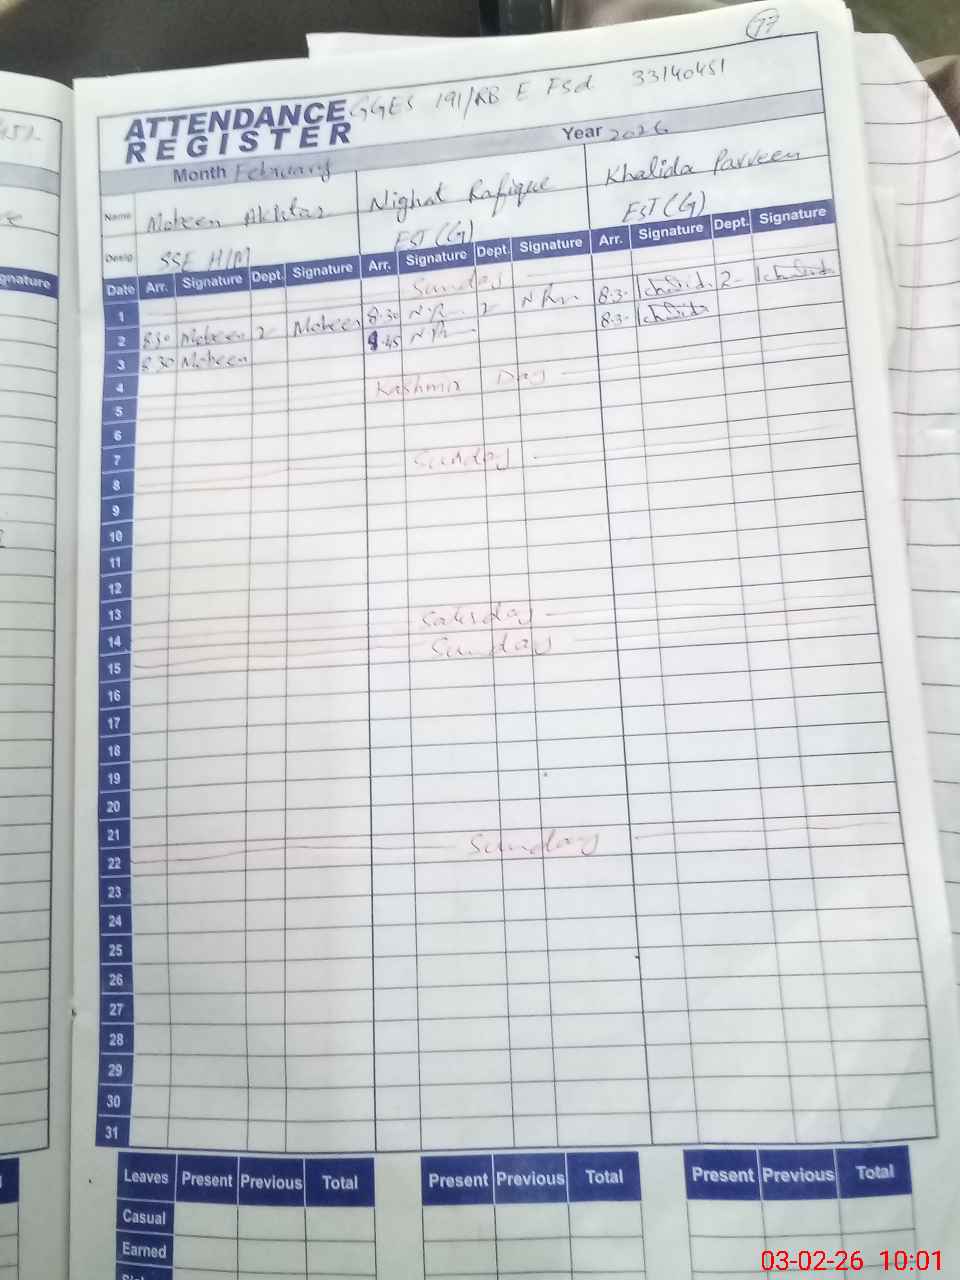 77
ATTENDANCE GGES 191/RB E FSd 33140451
REGISTER
Month February Year 2026
Name Moheen Akhtar Nighat Rafique Khalida Parveen
Desig SSE H/M EST (G) EST (G)
Date Arr. Signature Dept. Signature Arr. Signature Dept. Signature Arr. Signature Dept. Signature
1 Sunday
2 8.30 Moheen 2 Moheen 8.30 N.R 2 N R 8.3- Khalida 2- Khalida
3 8.30 Moheen 8.45 N R 8.3- Khalida
4
5 Kashmir Day
6
7
8 Sunday
9
10
11
12
13
14 Saturday
15 Sunday
16
17
18
19
20
21
22 Sunday
23
24
25
26
27
28
29
30
31
Leaves Present Previous Total Present Previous Total Present Previous Total
Casual
Earned
gnature
03-02-26 10:01